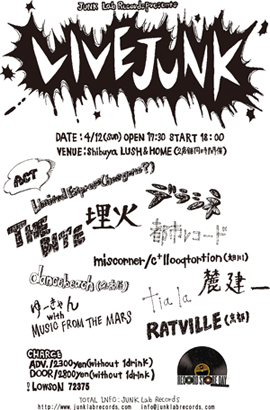 JUNK Lab Records Presents
LIVE JUNK
DATE : 4/12(sun) OPEN 17:30 START 18:00
VENUE : Shibuya LUSH&HOME(2会場同時開催)
ACT
Limited Express(has gone?)
デラシネ
THE BITE
埋火
都市レコード
miscorner/c+llooqtortion(旭川)
dancebeach(京都)
麓健一
ゆーきゃん
with
MUSIC FROM THE MARS
tia la
RATVILLE(京都)
CHARGE
ADV./2300yen(without 1drink)
DOOR/2800yen(without 1drink)
! LOWSON 72375
RECORD STORE DAY
TOTAL INFO : JUNK Lab Records
http://www.junklabrecords.com info@junklabrecords.com